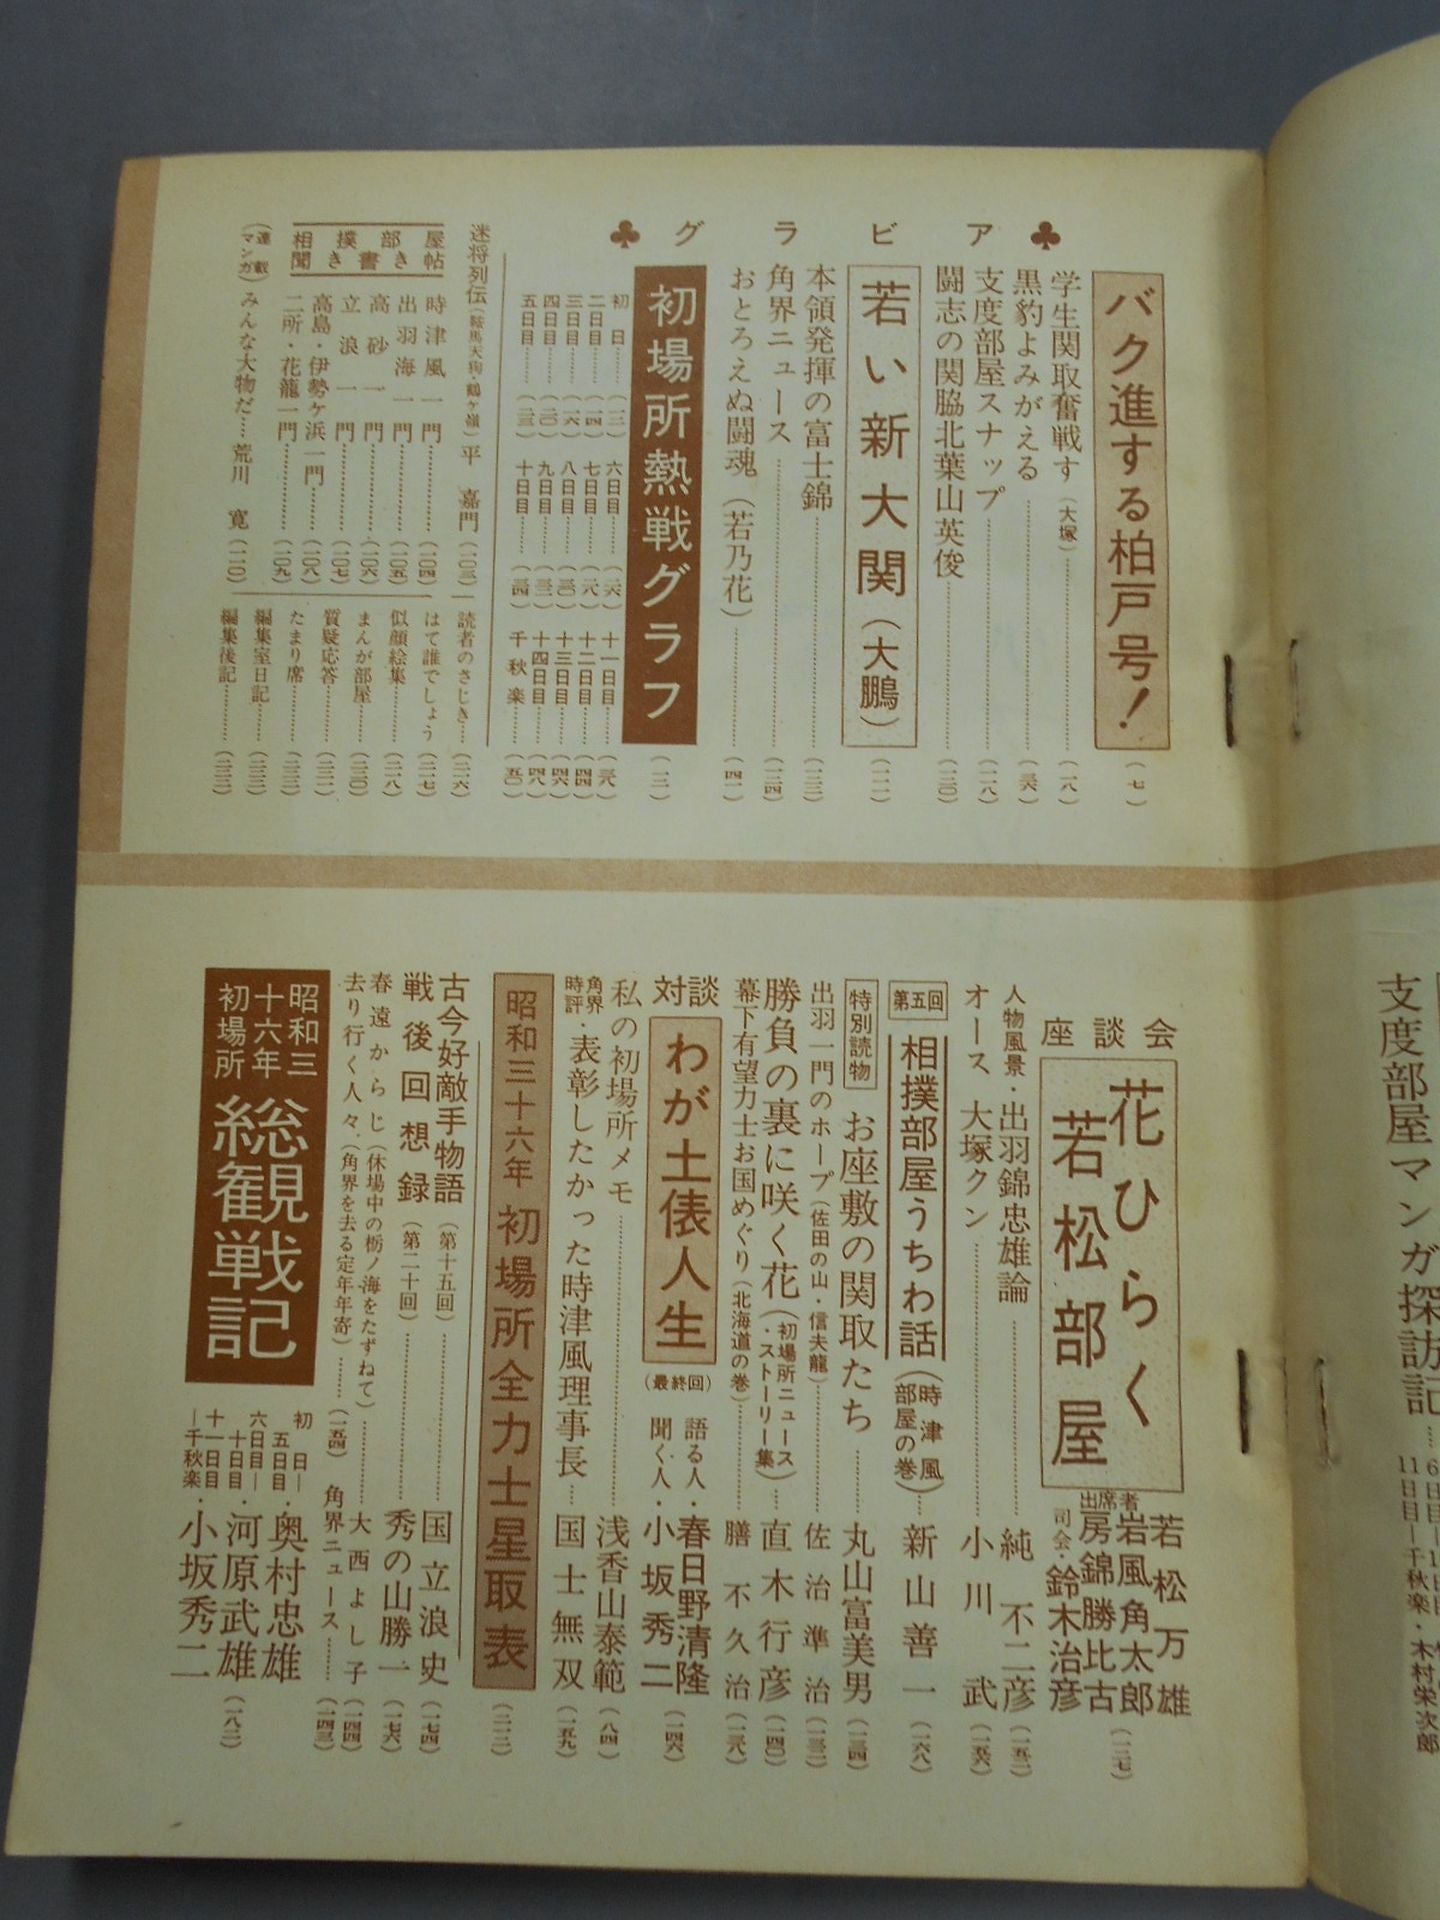 ♣ グラビア ♣
バク進する柏戸号！……(一七)
学生関取奮戦す(大塚)……(一八)
黒豹よみがえる……(三六)
支度部屋スナップ……(一二八)
闘志の関脇北葉山英俊……(一三〇)
若い新大関(大鵬)……(一一一)
本領発揮の富士錦……(一三三)
角界ニュース……(一二四)
おとろえぬ闘魂(若乃花)……(四一)
初場所熱戦グラフ(一二)
初日……(一三)
二日目……(一四)
三日目……(一六)
四日目……(二〇)
五日目……(二三)
六日目……(二六)
七日目……(二八)
八日目……(三〇)
九日目……(三二)
十日目……(三四)
十一日目……(三八)
十二日目……(四四)
十三日目……(四六)
十四日目……(四八)
千秋楽……(五〇)
迷将列伝(鞍馬天狗・鶴ヶ嶺)平 嘉門(一〇三)
相撲部屋聞き書き帖
時津風一門……(一〇四)
出羽海一門……(一〇五)
高砂一門……(一〇六)
立浪一門……(一〇七)
高島・伊勢ヶ浜一門……(一〇八)
二所・花籠一門……(一〇九)
(連載マンガ)みんな大物だ…荒川 寛(一一〇)
読者のさじき…(二一六)
はて誰でしょう(二一七)
似顔絵集……(二一八)
まんが部屋……(二二〇)
質疑応答……(二二一)
たまり席……(二二二)
編集室日記……(二二二)
編集後記……(二二二)
座談会
花ひらく若松部屋
出席者
若松万雄
岩風角太郎
房錦勝比古
司会・鈴木治彦(一二七)
人物風景・出羽錦忠雄論……純 不二彦(一五二)
オース 大塚クン……小川 武(一五六)
第五回 相撲部屋うちわ話(時津風部屋の巻)…新山善一(一六八)
特別読物 お座敷の関取たち……丸山富美男(一三四)
出羽一門のホープ(佐田の山・信夫龍)……佐治準治(一三二)
勝負の裏に咲く花(初場所ニュース・ストーリー集)…直木行彦(一四〇)
幕下有望力士お国めぐり(北海道の巻)……膳不久治(一三八)
対談 わが土俵人生(最終回)
語る人・春日野清隆
聞く人・小坂秀二(一四六)
私の初場所メモ……浅香山泰範(八四)
角界時評・表彰したかった時津風理事長…国士無双(一五九)
昭和三十六年 初場所全力士星取表(二一二)
古今好敵手物語(第十五回)……国立浪史(一七四)
戦後回想録(第二十回)……秀の山勝一(一七六)
春遠からじ(休場中の栃ノ海をたずねて)……大西よし子(一四四)
去り行く人々(角界を去る定年年寄)……(一五四)
角界ニュース……(一四三)
昭和三十六年初場所 総観戦記
初日―五日目・奥村忠雄
六日目―十日目・河原武雄
十一日目―千秋楽・小坂秀二(一八二)
支度部屋マンガ探訪記…
11日目―千秋楽・木村栄次郎